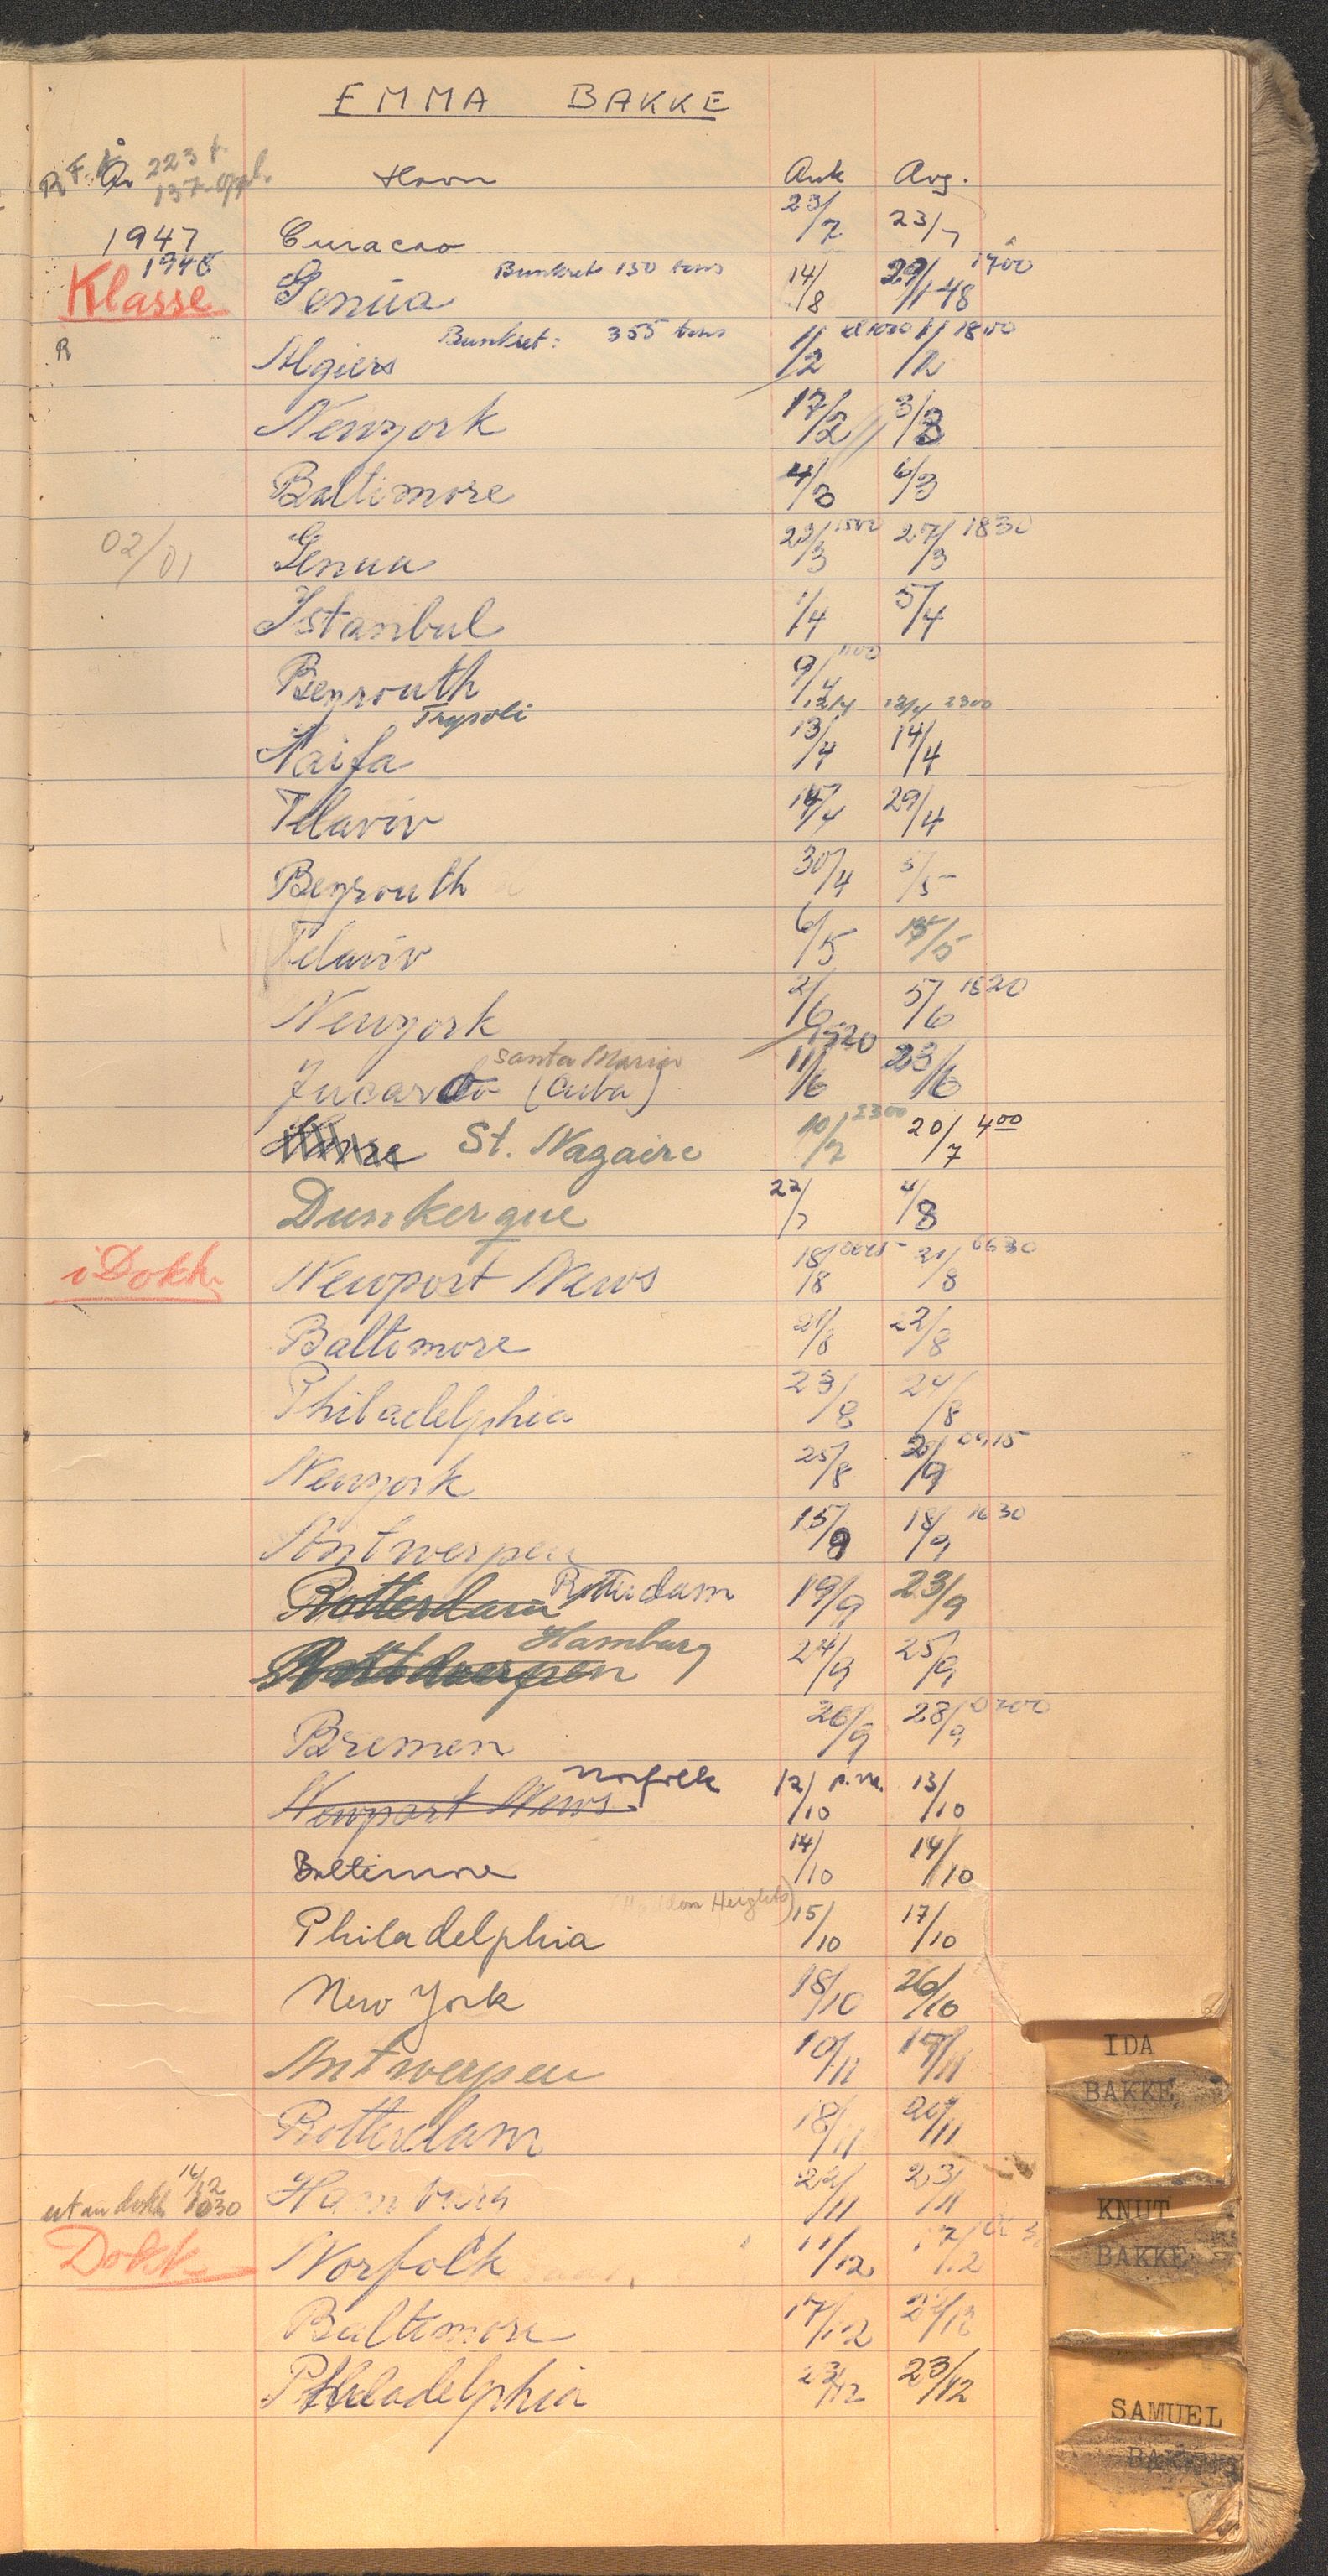 EMMA BAKKE
R F. År 223 t.
137
Havn Ank Avg.
1947 Curacao 23/7 23/7
1948
Klasse Genua Bunkret 150 tons 14/8 29/1 48 1700
R Algiers Bunkret: 355 tons 1/2 1/2 1800
Newyork 17/2 3/3
Baltimore 4/3 6/3
02/01 Genua 22/3 1500 27/3 1830
Istanbul 1/4 5/4
Beyrouth 9/4
Trypoli 12/4 12/4 2300
Haifa 13/4 14/4
Telaviv 15/4 29/4
Beyrouth 30/4 5/5
Telaviv 6/5 15/5
Newyork 2/6 5/6 1620
1520
Jucaro Santa Maria (Cuba) 11/6 23/6
St. Nazaire 10/7 2300 20/7 400
Dunkerque 22/7 4/8
i Dokk Newport News 18/8 21/8 0630
Baltimore 21/8 22/8
Philadelphia 23/8 24/8
Newyork 25/8 0915
Antwerpen 15/9 18/9 1630
Rotterdam Rotterdam 19/9 23/9
Hamburg 24/9 25/9
Bremen 26/9 28/9 0700
Newport News Norfolk 12/10 p.m. 13/10
Baltimore 14/10 14/10
Philadelphia Heights) 15/10 17/10
New York 18/10 26/10
Antwerpen 10/11 17/11
Rotterdam 18/11 20/11
Hamburg 22/11 23/11
ut av dokk 16/12 1030
Dokk Norfolk 11/12
Baltimore 17/12 22/12
Philadelphia 23/12 23/12
IDA
BAKKE
KNUT
BAKKE
SAMUEL
BAKKE